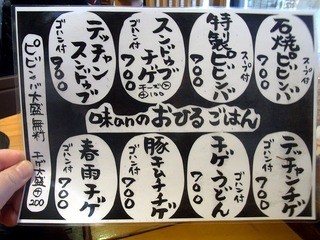 石焼ピビンバ
スープ付
700
特製ピビンバ
スープ付
700
スンドゥブチゲ
ゴハン付
700
テッチャンスンドゥブ
ゴハン付
900
味anのおひるごはん
テッチャンチゲ
ゴハン付
900
チゲうどん
ゴハン付
700
豚キムチチゲ
ゴハン付
700
春雨チゲ
ゴハン付
700
ピビンバ大盛無料 チゲ大盛⊕200